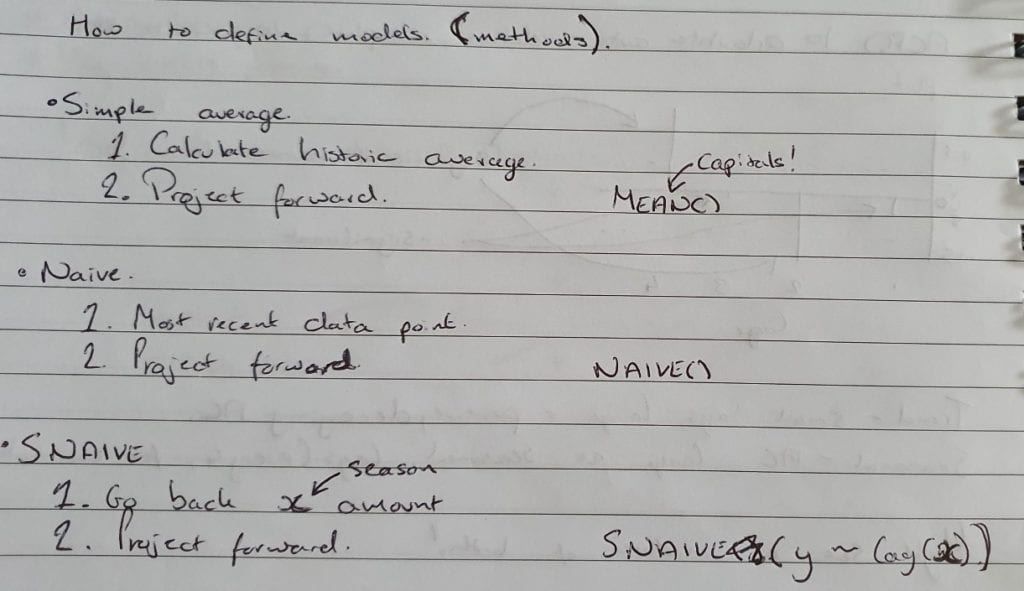 How to define models. (methods).
• Simple average.
1. Calculate historic average.
Capitals!
2. Project forward. MEAN()
• Naive.
1. Most recent data point.
2. Project forward NAIVE()
• SNAIVE
season
1. Go back x amount
2. Project forward. SNAIVE(y ~ lag(x))